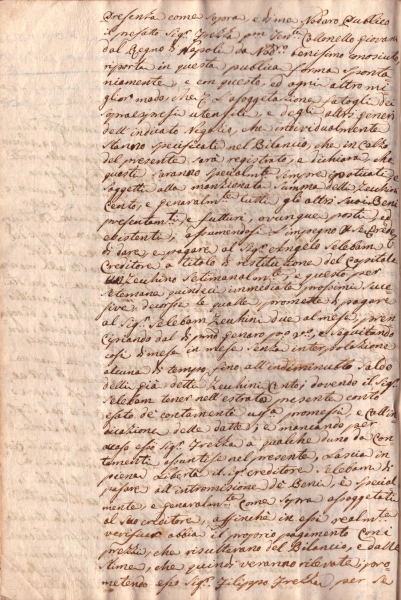 presenza come sopra, e di me Nodaro Publico
il prefato Sig.r Frezza qm Ten.te Collonello Giovanni
dal Regno di Napoli da Nod.ro benissimo conosciuto
riporta in questa publica forma sponta
niamente, e con questo, ed ogni altro mi
glior modo che
utensili, e degli altri generi
dell'indicato Negozio, che individualmente
stanno specificate nel Bilancio, che in calce
del presente sarà registrato, e dichiara che
questi saranno specialm.te sempre ipotecati, e
soggetti alla menzionata summa delli Zecchini
cento, e generalm.te tutti gli altri suoi Beni
presentanei, e futturi, ovunque posti, ed
esistenti; assumendosi l'impegno
di dare, e pagare al Sig.r Angelo Selebam
Creditore a titolo di restituzione del capitale
Zecchino settimanalm.te, e questo per
settemane quindeci immediate prossimi succe
sive, decorse le qualle promette di pagare
al Sig.r Selebam Zecchini due al mese, prin
cipiando dal di primo genaro, e seguitando
così di mese in mese senza interpolazione
alcuna di tempo, fino all'indiminutto saldo
delli già detti Zecchini Cento; dovendo il Sig.r
Selebam tener nell'estratto presente conto
esato de contamente promessi, e coll'in
dicazione delle datte; e mancando per
caso esso Sig.r Frezza a qualche duno da con
tamenti assuntisi nel presente, lascia in
piena libertà il Sig.r creditore Selebam di
passare all'intromissione de Beni, e special
mente, e generalm.te come sopra assoggetati
al suo creditore, affinchè in essi realm.te
verificar abbia il proprio pagamento con i
prezzi, che risulterano del Bilancio, e dalle
stime, che quindi veranno rilevate; pro
mettendo esso Sig.r Filippo Frezza per se